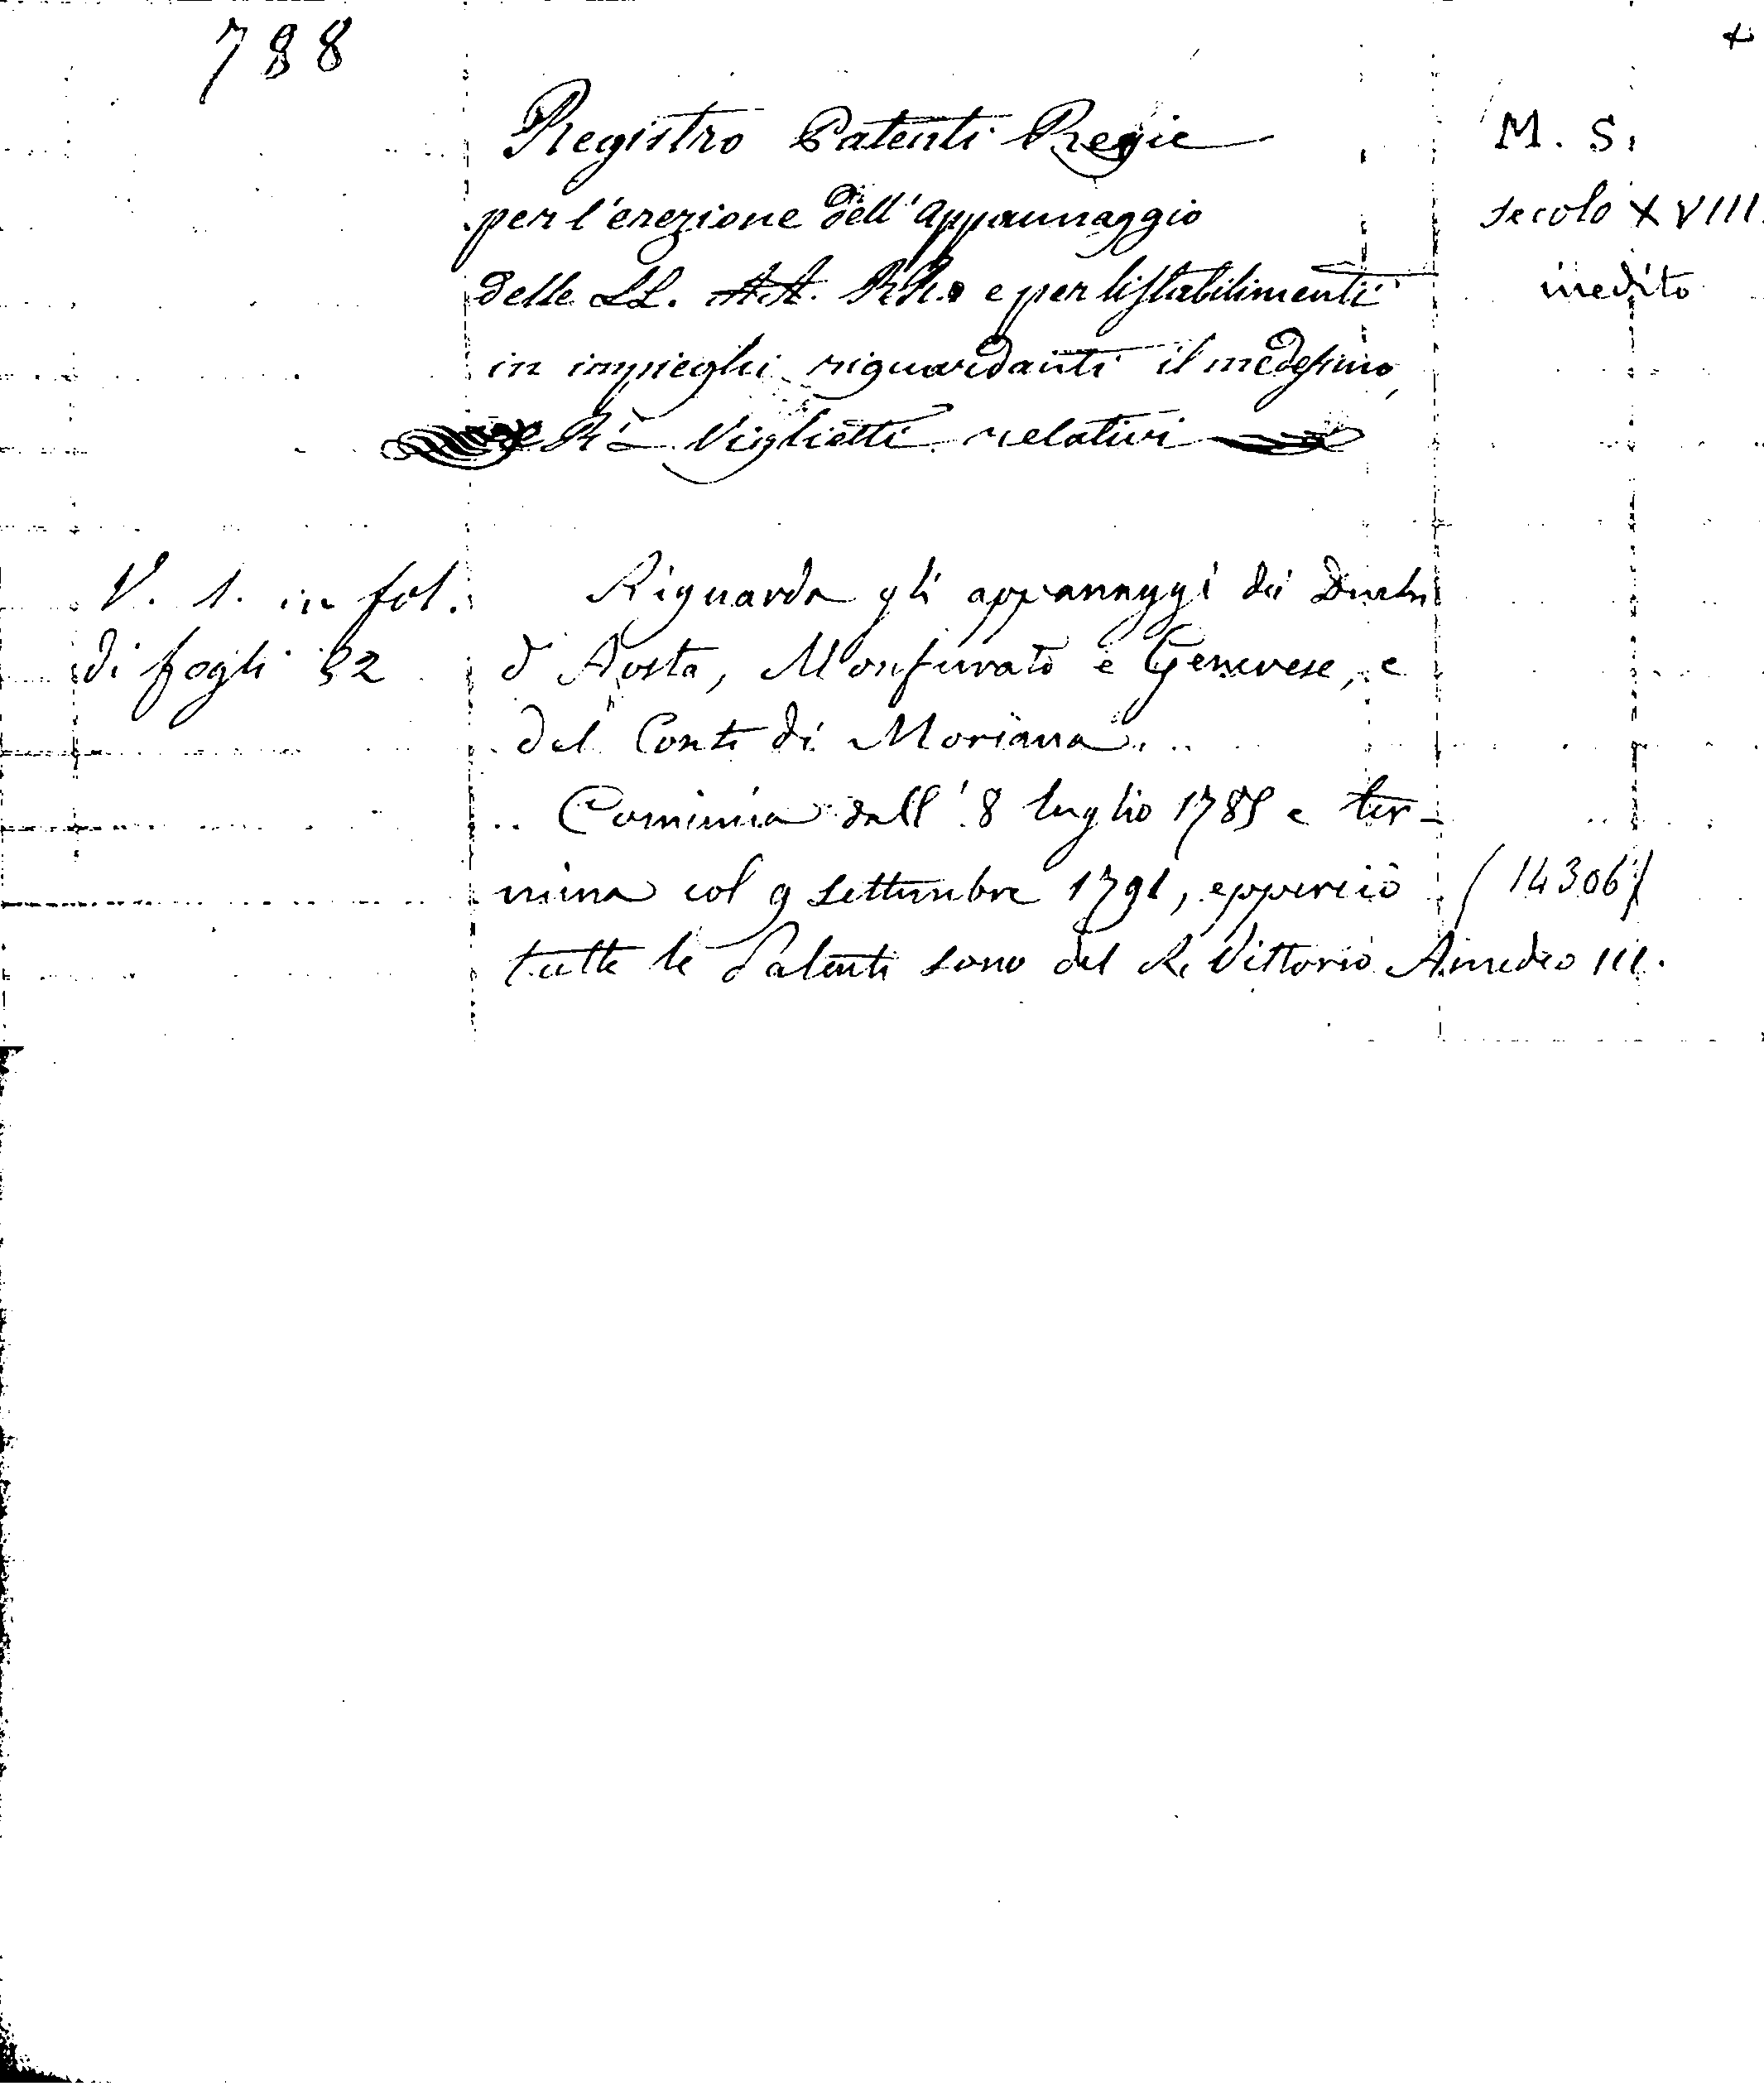 788
Registro Patenti Regie
per l'erezione dell'Appannaggio
delle LL. AA. RR. e per li stabilimenti
in impieghi riguardanti il medesimo,
e Ri Viglietti relativi
M. S.
secolo XVIII.
inedito
V. 1. in fol.
di fogli 82
Riguarda gli appannaggi dei Duchi
d'Aosta, Monferrato e Genevese, e
del Conte di Moriana.
Comincia dall' 8 luglio 1785 e ter-
mina col 9 settembre 1791, epperciò
tutte le Patenti sono del Re Vittorio Amedeo III.
(14306)